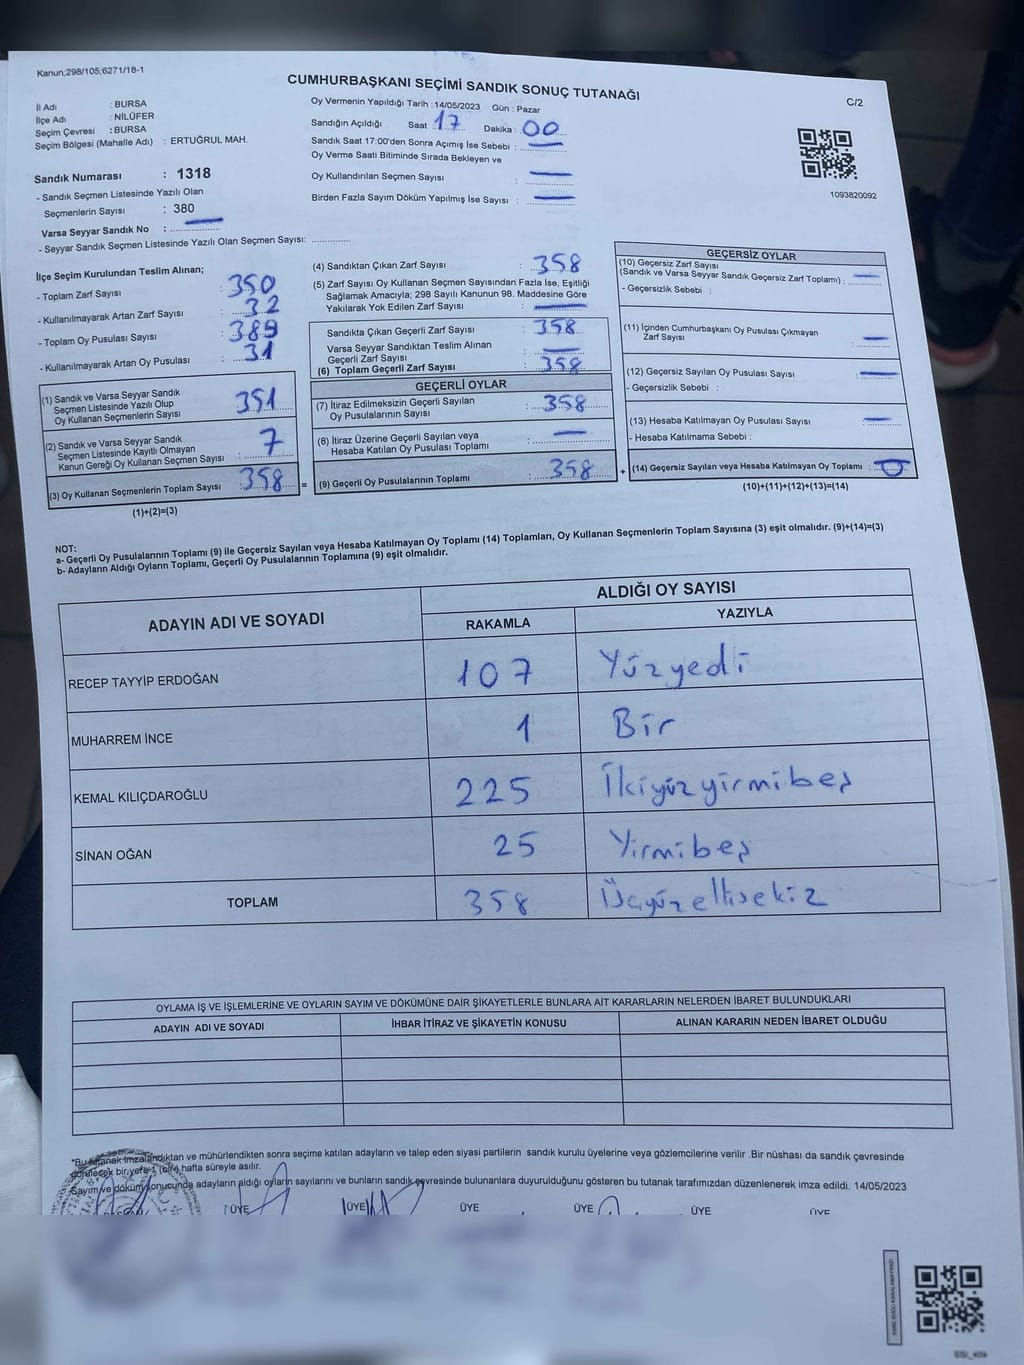 Kanun;298/105;6271/18-1
CUMHURBAŞKANI SEÇİMİ SANDIK SONUÇ TUTANAĞI
C/2
İl Adı : BURSA
İlçe Adı : NİLÜFER
Seçim Çevresi : BURSA
Seçim Bölgesi (Mahalle Adı) : ERTUĞRUL MAH.
Sandık Numarası : 1318
- Sandık Seçmen Listesinde Yazılı Olan
Seçmenlerin Sayısı : 380
Varsa Seyyar Sandık No :
- Seyyar Sandık Seçmen Listesinde Yazılı Olan Seçmen Sayısı:
Oy Vermenin Yapıldığı Tarih : 14/05/2023 Gün : Pazar
Sandığın Açıldığı Saat : 17 Dakika : 00
Sandık Saat 17:00'den Sonra Açımış İse Sebebi :
Oy Verme Saati Bitiminde Sırada Bekleyen ve
Oy Kullandırılan Seçmen Sayısı :
Birden Fazla Sayım Döküm Yapılmış İse Sayısı :
1093820092
İlçe Seçim Kurulundan Teslim Alınan;
- Toplam Zarf Sayısı : 350
- Kullanılmayarak Artan Zarf Sayısı : 32
- Toplam Oy Pusulası Sayısı : 389
- Kullanılmayarak Artan Oy Pusulası : 31
(1) Sandık ve Varsa Seyyar Sandık
Seçmen Listesinde Yazılı Olup
Oy Kullanan Seçmenlerin Sayısı : 351
(2) Sandık ve Varsa Seyyar Sandık
Seçmen Listesinde Kayıtlı Olmayan
Kanun Gereği Oy Kullanan Seçmen Sayısı : 7
(3) Oy Kullanan Seçmenlerin Toplam Sayısı : 358 =
(1)+(2)=(3)
(4) Sandıktan Çıkan Zarf Sayısı : 358
(5) Zarf Sayısı Oy Kullanan Seçmen Sayısından Fazla İse, Eşitliği
Sağlamak Amacıyla; 298 Sayılı Kanunun 98. Maddesine Göre
Yakılarak Yok Edilen Zarf Sayısı :
Sandıkta Çıkan Geçerli Zarf Sayısı : 358
Varsa Seyyar Sandıktan Teslim Alınan
Geçerli Zarf Sayısı :
(6) Toplam Geçerli Zarf Sayısı : 358
GEÇERLİ OYLAR
(7) İtiraz Edilmeksizin Geçerli Sayılan
Oy Pusulalarının Sayısı : 358
(8) İtiraz Üzerine Geçerli Sayılan veya
Hesaba Katılan Oy Pusulası Toplamı :
(9) Geçerli Oy Pusulalarının Toplamı : 358 +
GEÇERSİZ OYLAR
(10) Geçersiz Zarf Sayısı
(Sandık ve Varsa Seyyar Sandık Geçersiz Zarf Toplamı) :
- Geçersizlik Sebebi :
(11) İçinden Cumhurbaşkanı Oy Pusulası Çıkmayan
Zarf Sayısı :
(12) Geçersiz Sayılan Oy Pusulası Sayısı :
- Geçersizlik Sebebi :
(13) Hesaba Katılmayan Oy Pusulası Sayısı :
- Hesaba Katılmama Sebebi :
(14) Geçersiz Sayılan veya Hesaba Katılmayan Oy Toplamı : 0
(10)+(11)+(12)+(13)=(14)
NOT:
a- Geçerli Oy Pusulalarının Toplamı (9) ile Geçersiz Sayılan veya Hesaba Katılmayan Oy Toplamı (14) Toplamları, Oy Kullanan Seçmenlerin Toplam Sayısına (3) eşit olmalıdır. (9)+(14)=(3)
b- Adayların Aldığı Oyların Toplamı, Geçerli Oy Pusulalarının Toplamına (9) eşit olmalıdır.
ADAYIN ADI VE SOYADI
ALDIĞI OY SAYISI
RAKAMLA YAZIYLA
RECEP TAYYİP ERDOĞAN 107 Yüzyedi
MUHARREM İNCE 1 Bir
KEMAL KILIÇDAROĞLU 225 İkiyüzyirmibeş
SİNAN OĞAN 25 Yirmibeş
TOPLAM 358 Üçyüzellisekiz
OYLAMA İŞ VE İŞLEMLERİNE VE OYLARIN SAYIM VE DÖKÜMÜNE DAİR ŞİKAYETLERLE BUNLARA AİT KARARLARIN NELERDEN İBARET BULUNDUKLARI
ADAYIN ADI VE SOYADI İHBAR İTİRAZ VE ŞİKAYETİN KONUSU ALINAN KARARIN NEDEN İBARET OLDUĞU
*Bu tutanak imzalandıktan ve mühürlendikten sonra seçime katılan adayların ve talep eden siyasi partilerin sandık kurulu üyelerine veya gözlemcilerine verilir .Bir nüshası da sandık çevresinde
görülecek bir yere 1 (bir) hafta süreyle asılır.
Sayım ve döküm sonucunda adayların aldığı oyların sayılarını ve bunların sandık çevresinde bulunanlara duyurulduğunu gösteren bu tutanak tarafımızdan düzenlenerek imza edildi. 14/05/2023
ÜYE ÜYE ÜYE ÜYE ÜYE ÜYE